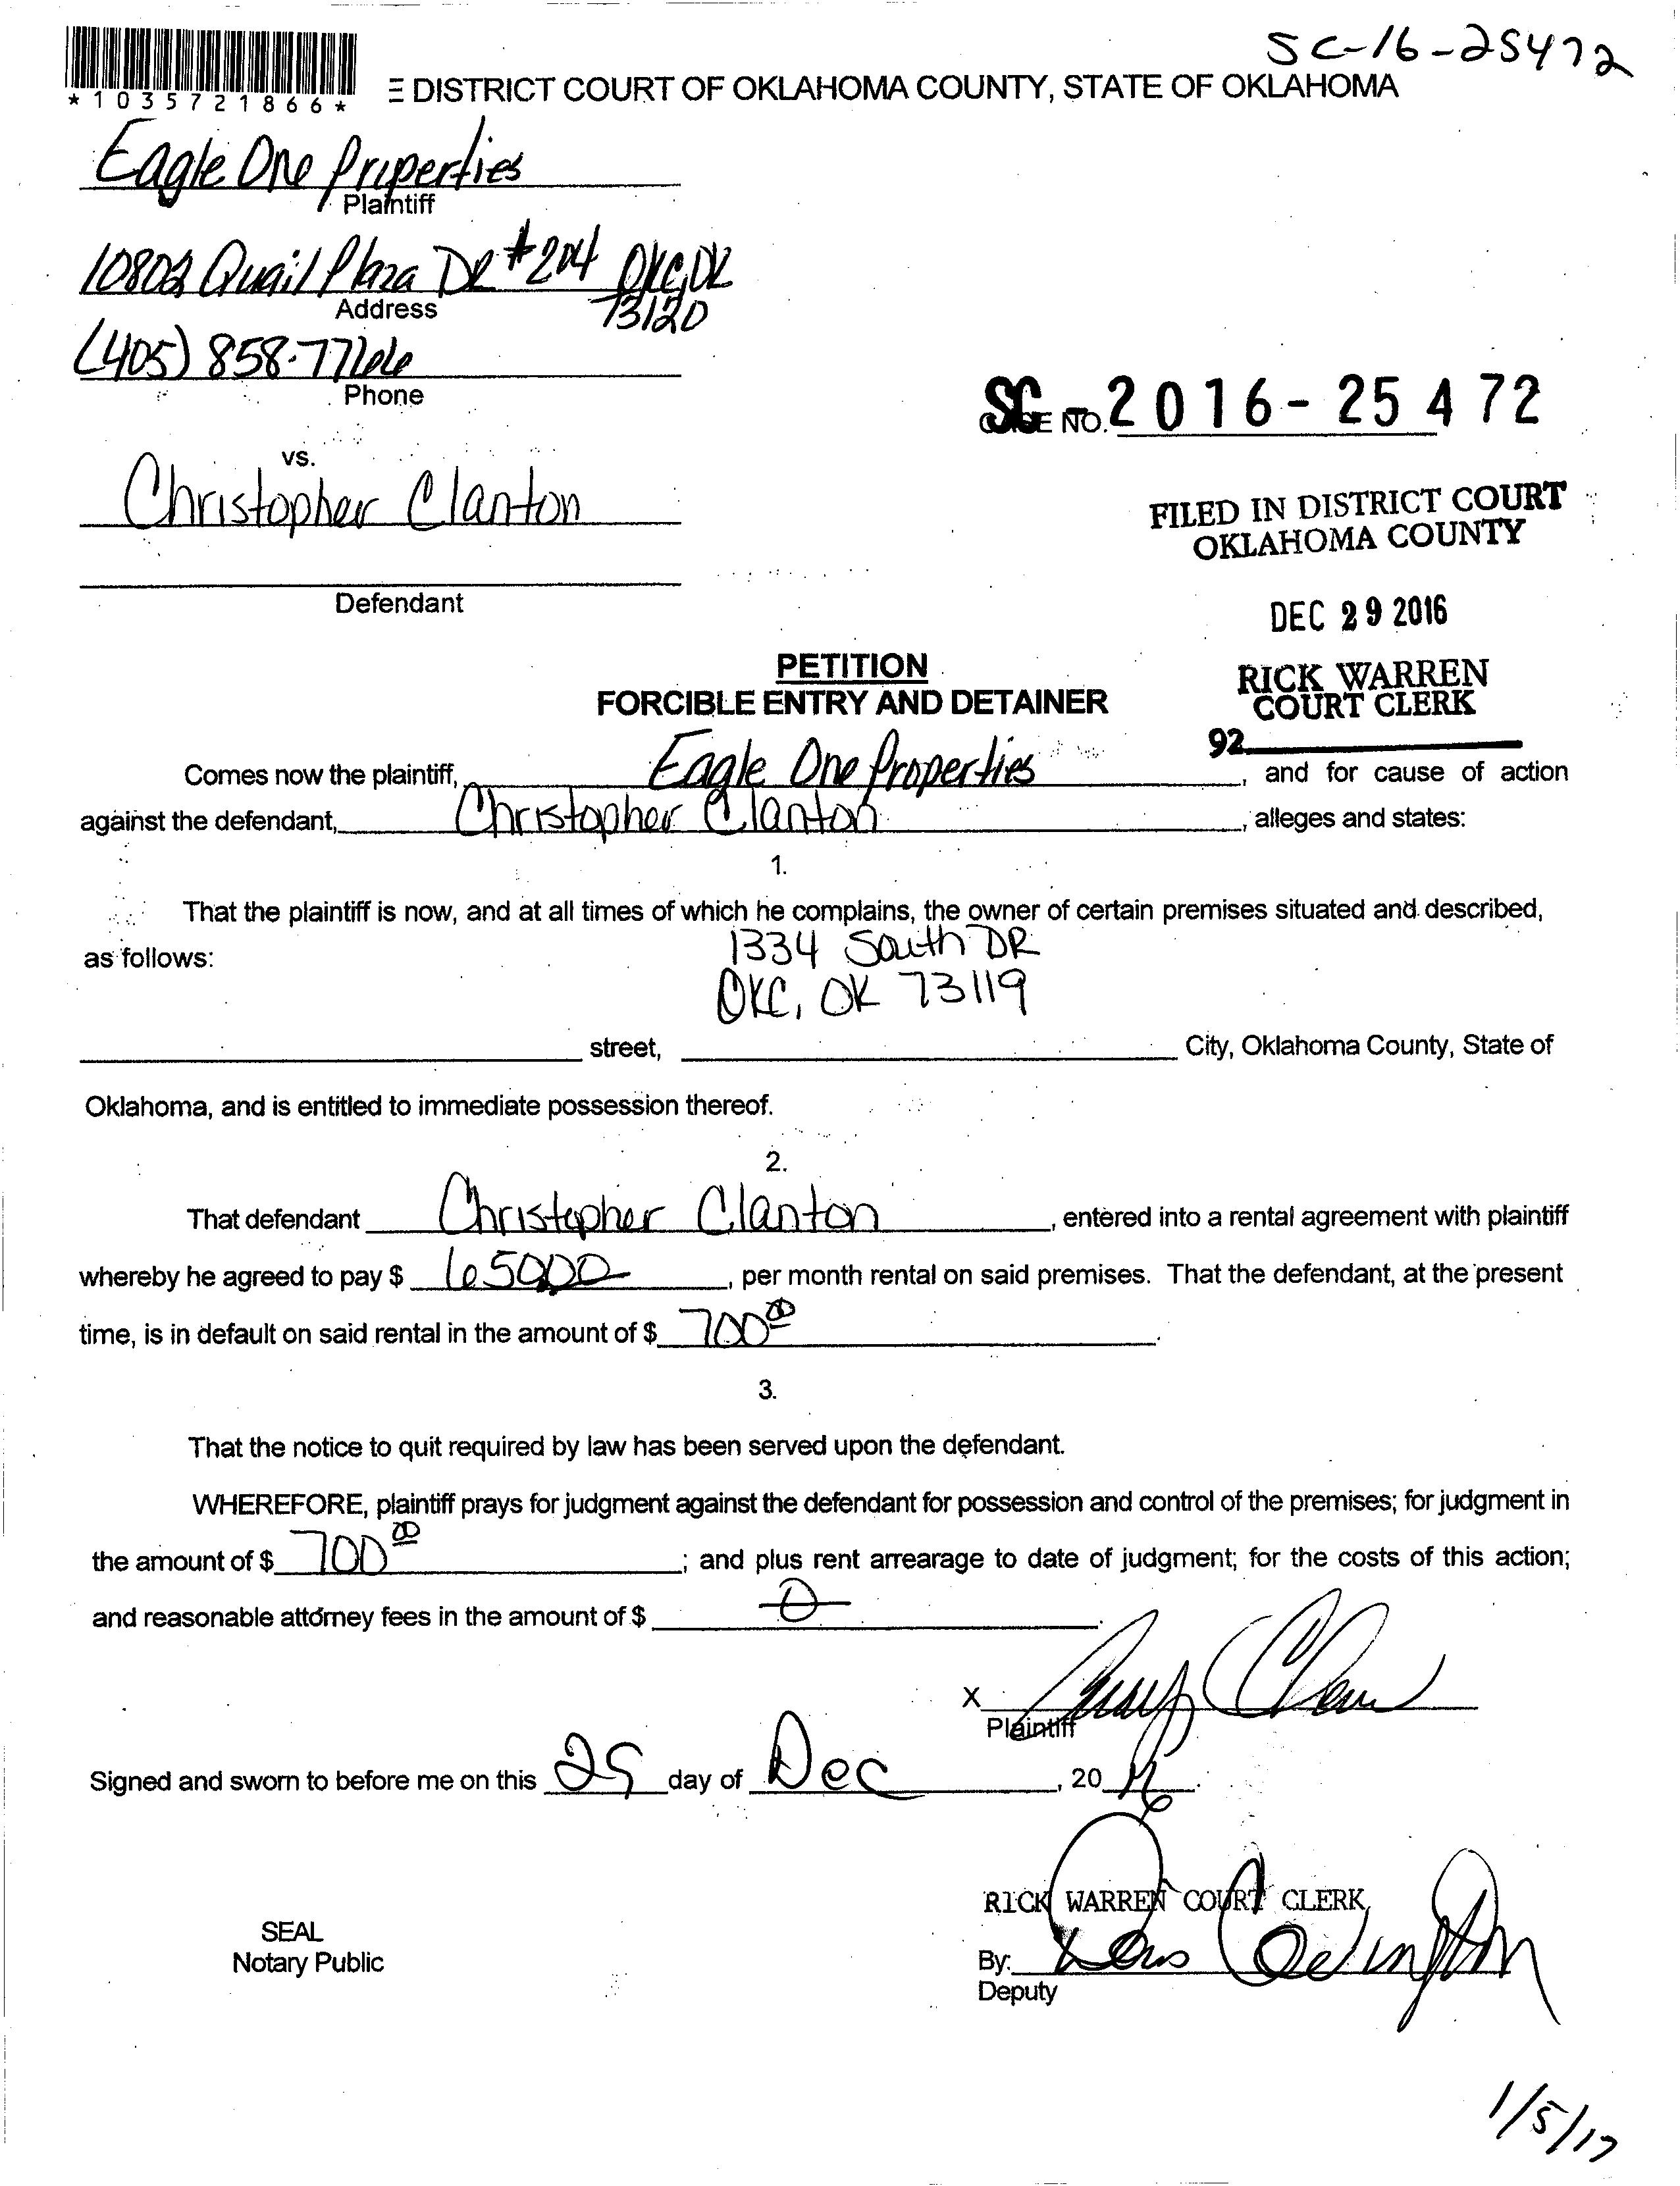 SC-16-25472
*1035721866*
E DISTRICT COURT OF OKLAHOMA COUNTY, STATE OF OKLAHOMA
Eagle One Properties
Plaintiff
10802 Quail Plaza DR #204 OKC, OK
73120
Address
(405) 858-7766
Phone
SC-2016-25472
CASE NO.
vs.
Christopher Clanton
FILED IN DISTRICT COURT
OKLAHOMA COUNTY
Defendant
DEC 29 2016
PETITION
FORCIBLE ENTRY AND DETAINER
RICK WARREN
COURT CLERK
92
Comes now the plaintiff, Eagle One Properties, and for cause of action
against the defendant, Christopher Clanton, alleges and states:
1.
That the plaintiff is now, and at all times of which he complains, the owner of certain premises situated and described,
as follows: 1334 South DR
OKC, OK 73119
street, City, Oklahoma County, State of
Oklahoma, and is entitled to immediate possession thereof.
2.
That defendant Christopher Clanton, entered into a rental agreement with plaintiff
whereby he agreed to pay $ 65000, per month rental on said premises. That the defendant, at the present
time, is in default on said rental in the amount of $ 700 00.
3.
That the notice to quit required by law has been served upon the defendant.
WHEREFORE, plaintiff prays for judgment against the defendant for possession and control of the premises; for judgment in
the amount of $ 700 00; and plus rent arrearage to date of judgment; for the costs of this action;
and reasonable attorney fees in the amount of $ 0.
X
Plaintiff
Signed and sworn to before me on this 29 day of Dec, 20 16.
RICK WARREN COURT CLERK
SEAL
Notary Public
By:
Deputy
1/5/17